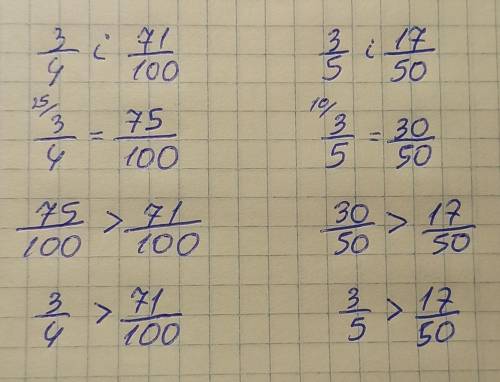 3/4 і 71/100
25/ 3/4 = 75/100
75/100 > 71/100
3/4 > 71/100
3/5 і 17/50
10/ 3/5 = 30/50
30/50 > 17/50
3/5 > 17/50